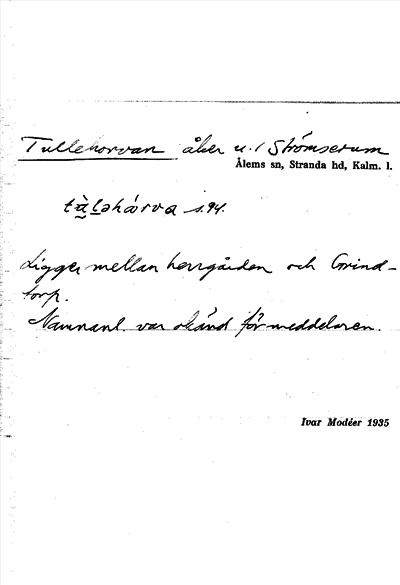 Tullehorvan åker u. / Strömserum
Ålems sn, Stranda hd, Kalm. l.
tṵ̀ḷəhórva s. 94.
Ligger mellan herrgården och Grind-
torp.
Namnanl. var okänd för meddelaren.
Ivar Modéer 1935